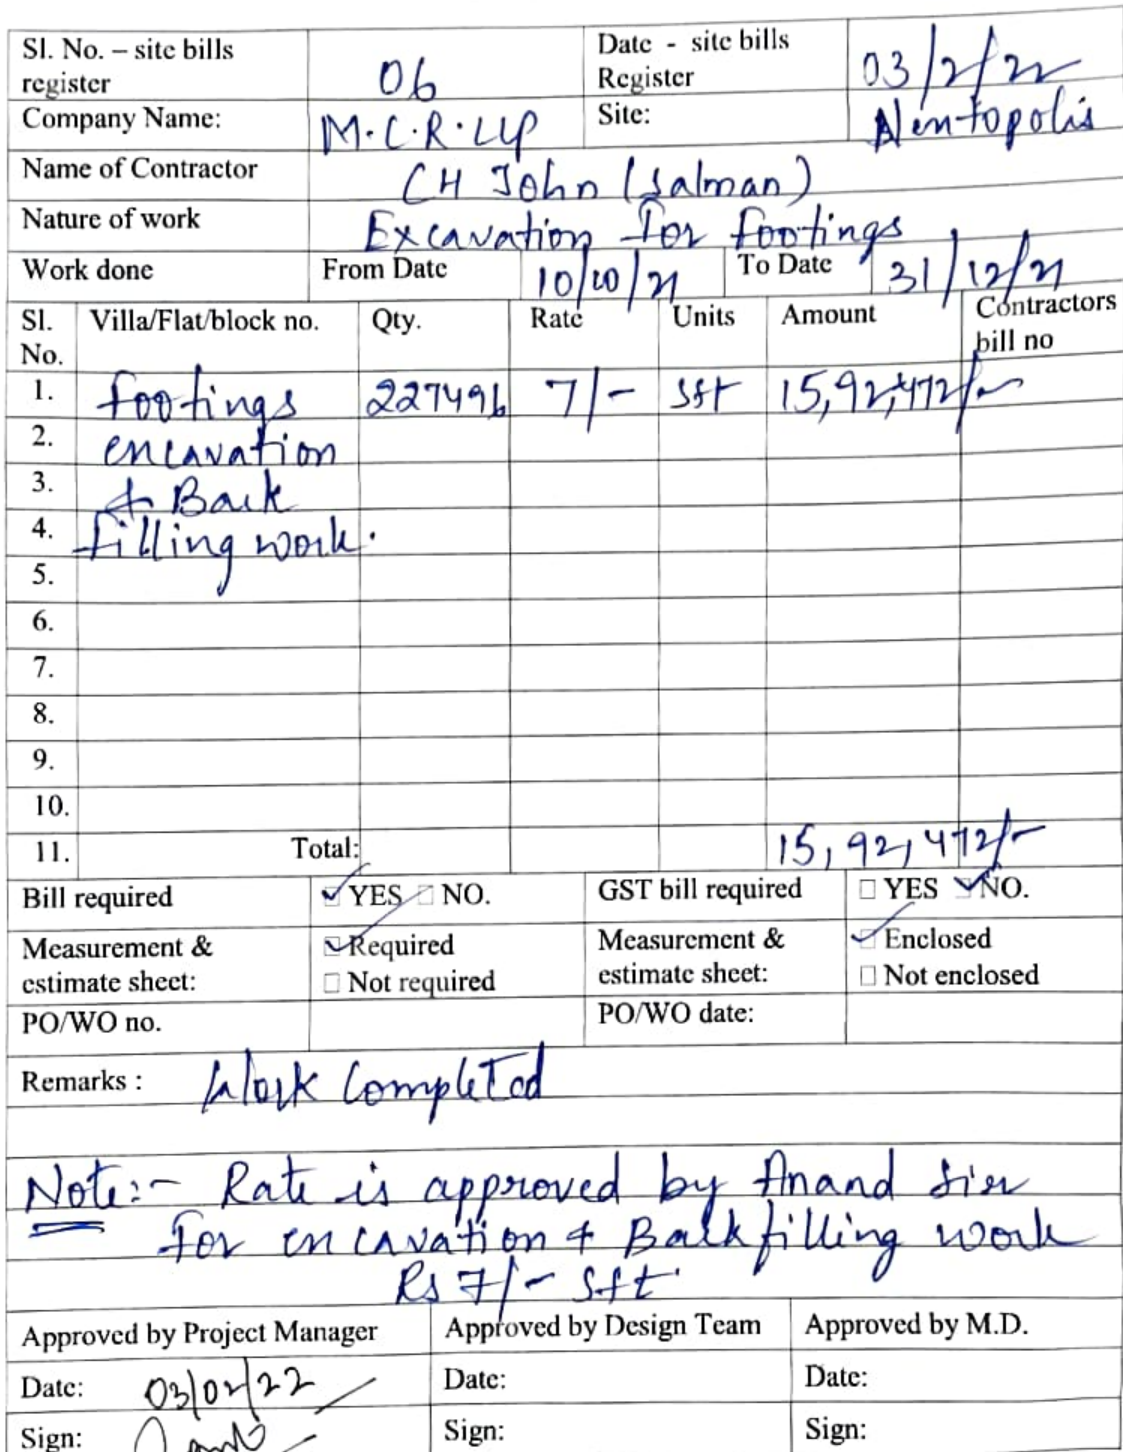 Sl. No. – site bills register 06 Date - site bills Register 03/2/22
Company Name: M.C.R.LLP Site: Nentopolis
Name of Contractor CH John (Salman)
Nature of work Excavation for footings
Work done From Date 10/10/21 To Date 31/12/21
Sl. No. Villa/Flat/block no. Qty. Rate Units Amount Contractors bill no
1. footings 227496 7/- sft 15,92,472/-
2. encavation
3. & Back
4. filling work.
5.
6.
7.
8.
9.
10.
11. Total: 15,92,472/-
Bill required YES NO. GST bill required YES NO.
Measurement & estimate sheet: Required Not required Measurement & estimate sheet: Enclosed Not enclosed
PO/WO no. PO/WO date:
Remarks : Work Completed
Note:- Rate is approved by Anand Sier
for encavation & Backfilling work
Rs 7/- sft
Approved by Project Manager Approved by Design Team Approved by M.D.
Date: 03/02/22 Date: Date:
Sign: Sign: Sign: